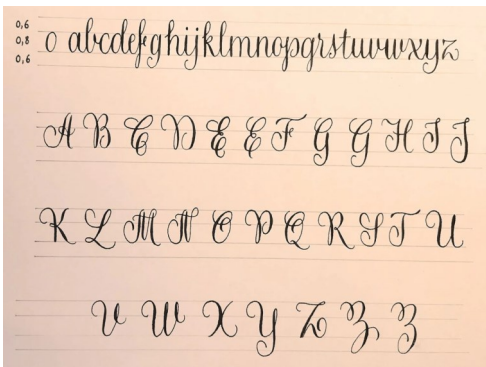 0,6
0,8
0,6
o abcdefghijklmnopqrstuvwxyz
A B C D E E F G G H I J
K L M N O P Q R S T U
V W X Y Z Z Z